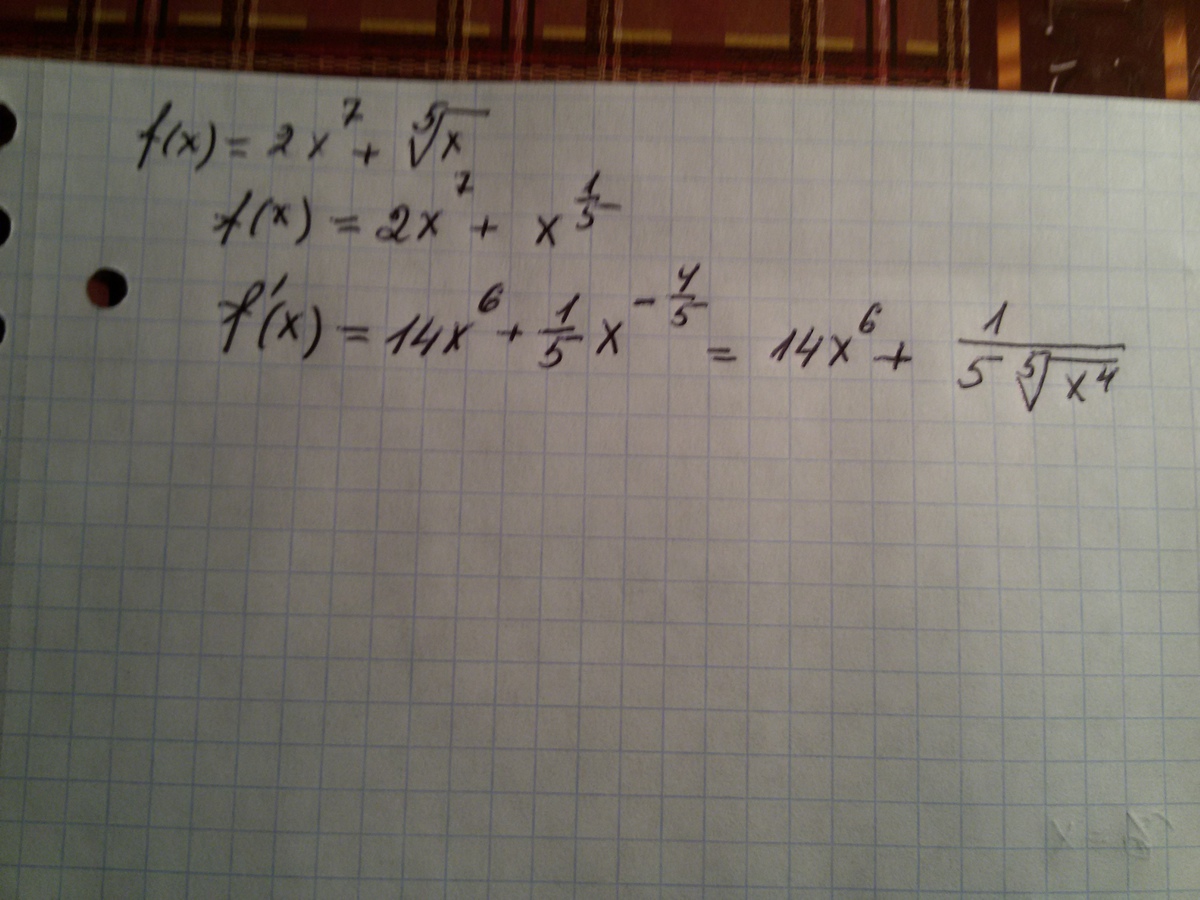 f(x) = 2x⁷ + ⁵√x
f(x) = 2x⁷ + x^(1/5)
f'(x) = 14x⁶ + 1/5 x^(-4/5) = 14x⁶ + 1/(5 ⁵√(x⁴))